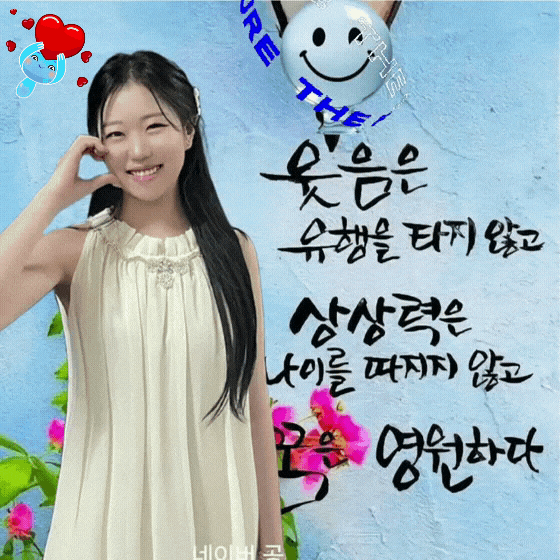 URE THE
웃음은
유행을 타지 않고
상상력은
나이를 따지지 않고
꿈은 영원하다
네이버 공